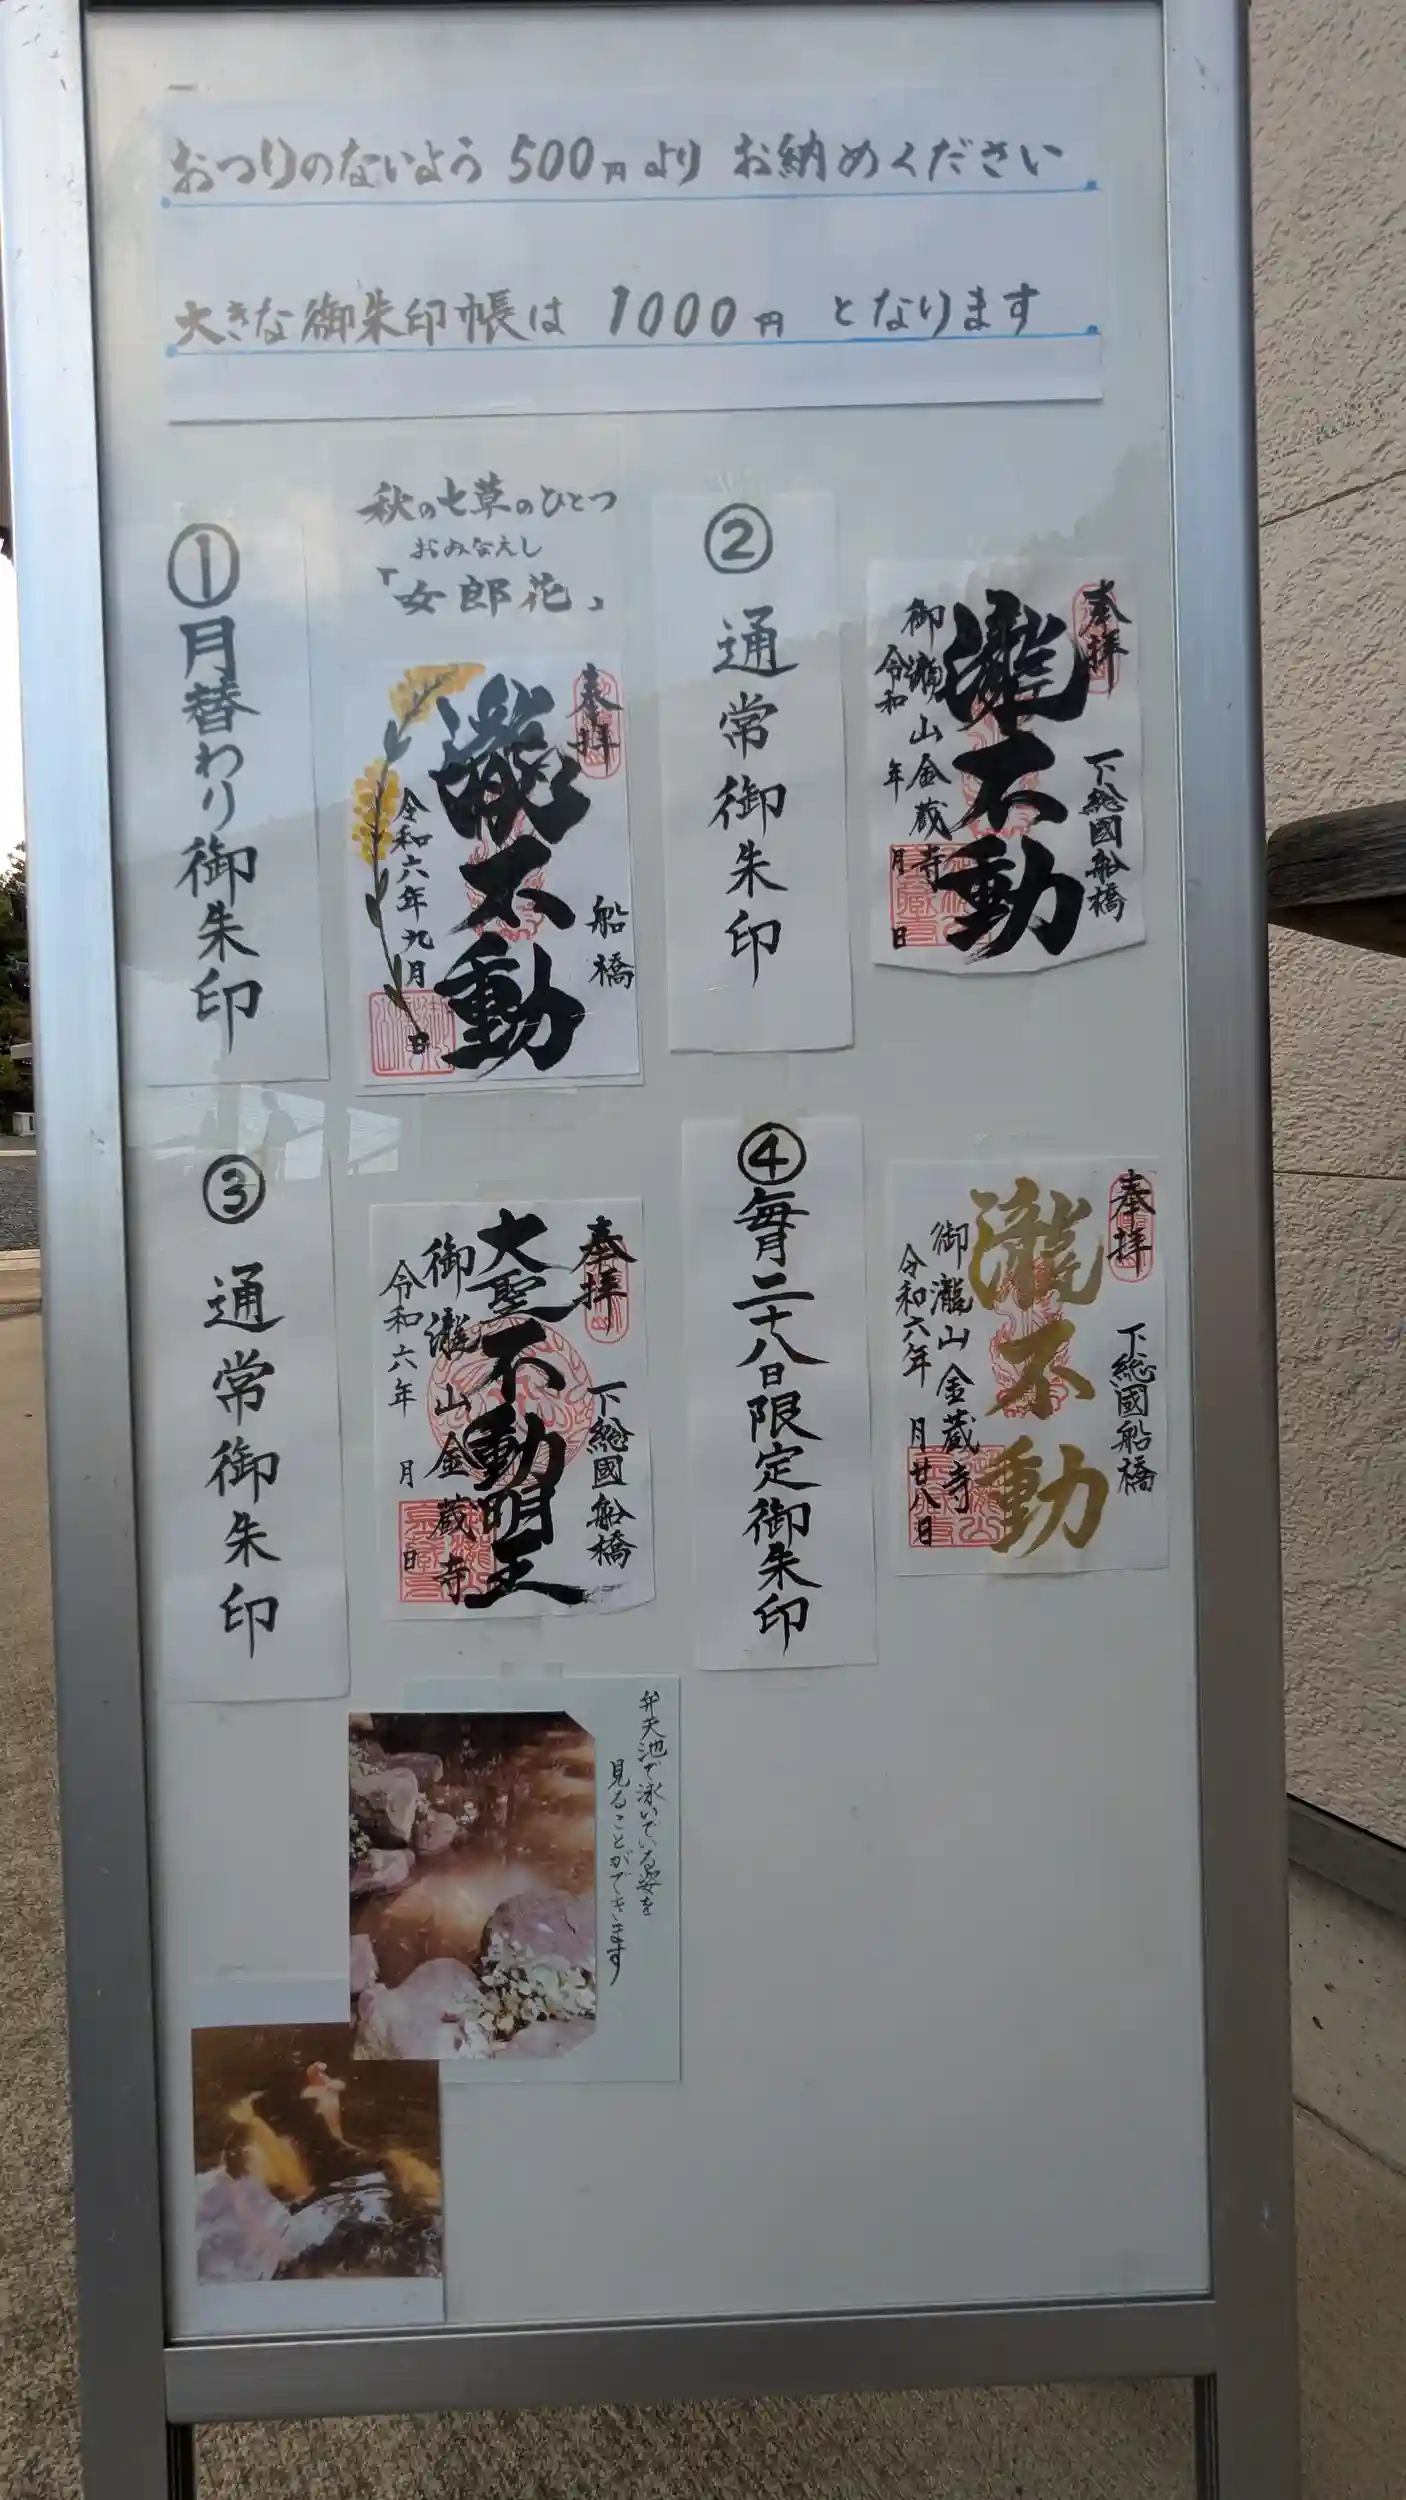 おつりのないよう 500円より お納めください
大きな御朱印帳は 1000円 となります
①月替わり御朱印
秋の七草のひとつ
おみなえし
「女郎花」
奉拝
船橋
瀧不動
令和六年九月 日
② 通常御朱印
奉拝
下総國船橋
瀧不動
御瀧山金蔵寺
令和 年 月 日
③ 通常御朱印
奉拝
下総國船橋
大聖不動明王
御瀧山金蔵寺
令和六年 月 日
④毎月二十八日限定御朱印
奉拝
下総國船橋
瀧不動
御瀧山金蔵寺
令和六年 月廿八日
弁天池で泳いでいる姿を
見ることができます